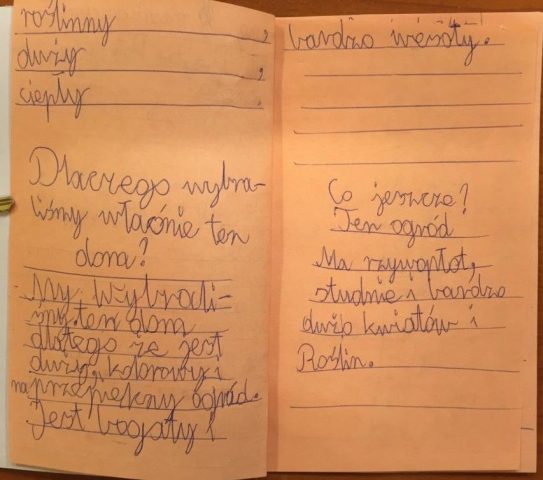 roślinny ,
duży ,
ciepły .
Dlaczego wybra-
liśmy właśnie ten
dom?
My wybrali-
śmy ten dom
dlatego że jest
duży, kolorowy i
ma przepiękny ogród.
Jest bogaty i
bardzo wesoły.
Co jeszcze?
Ten ogród
Ma rzywopłot,
studnie i bardzo
dużo kwiatów i
Roślin.